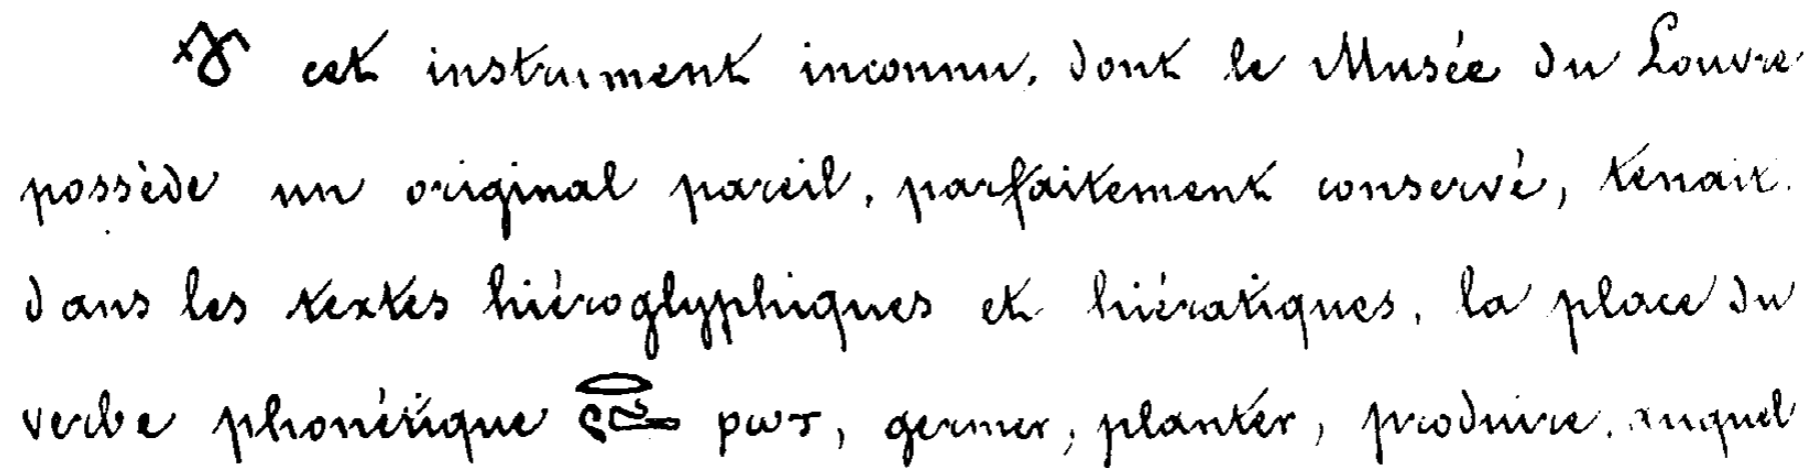 cet instrument inconnu, dont le Musée du Louvre
possède un original pareil, parfaitement conservé, tenait
dans les textes hiéroglyphiques et hiératiques, la place du
verbe phonétique ⲣⲱⲧ, germer, planter, produire, auquel